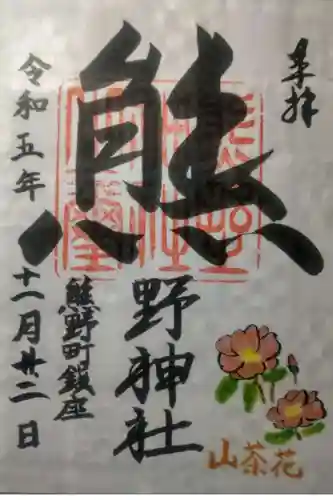 奉拝
熊
野神社
熊野町鎮座
令和五年十一月廿二日
山茶花